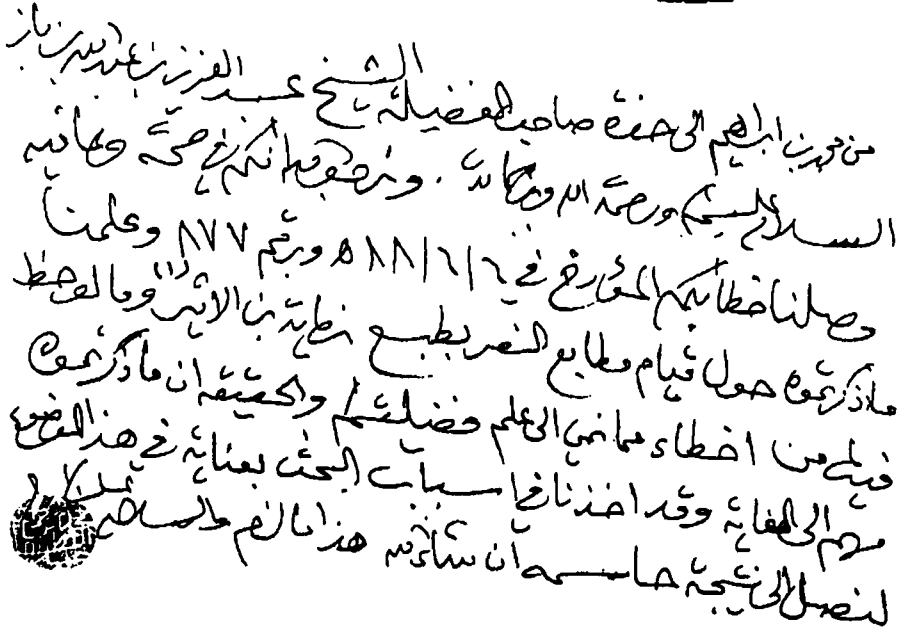 من محمد بن ابراهيم الى حضرة صاحب الفضيلة الشيخ عبد العزيز بن عبد الله بن باز
السلام عليكم ورحمة الله وبركاته . ونرجو الله انكم في صحة وعافيه
وصلنا خطابكم المؤرخ في ٦/٦/٨٨ه وبرقم ٨٧٧ وعلمنا
ماذكرتموه حول قيام مطابع النصر بطبع نهاية بن الاثير وما لوحظ
فيه من اخطاء مما نمى الى علم فضيلتكم والحقيقه ان ماذكرتموه
مهم الى الغاية وقد اخذنا في اسباب البحث بعناية في هذا الموضوع
لنصل الى نتيجة حاسمه ان شاء الله هذا مالزم والسلام عليكم